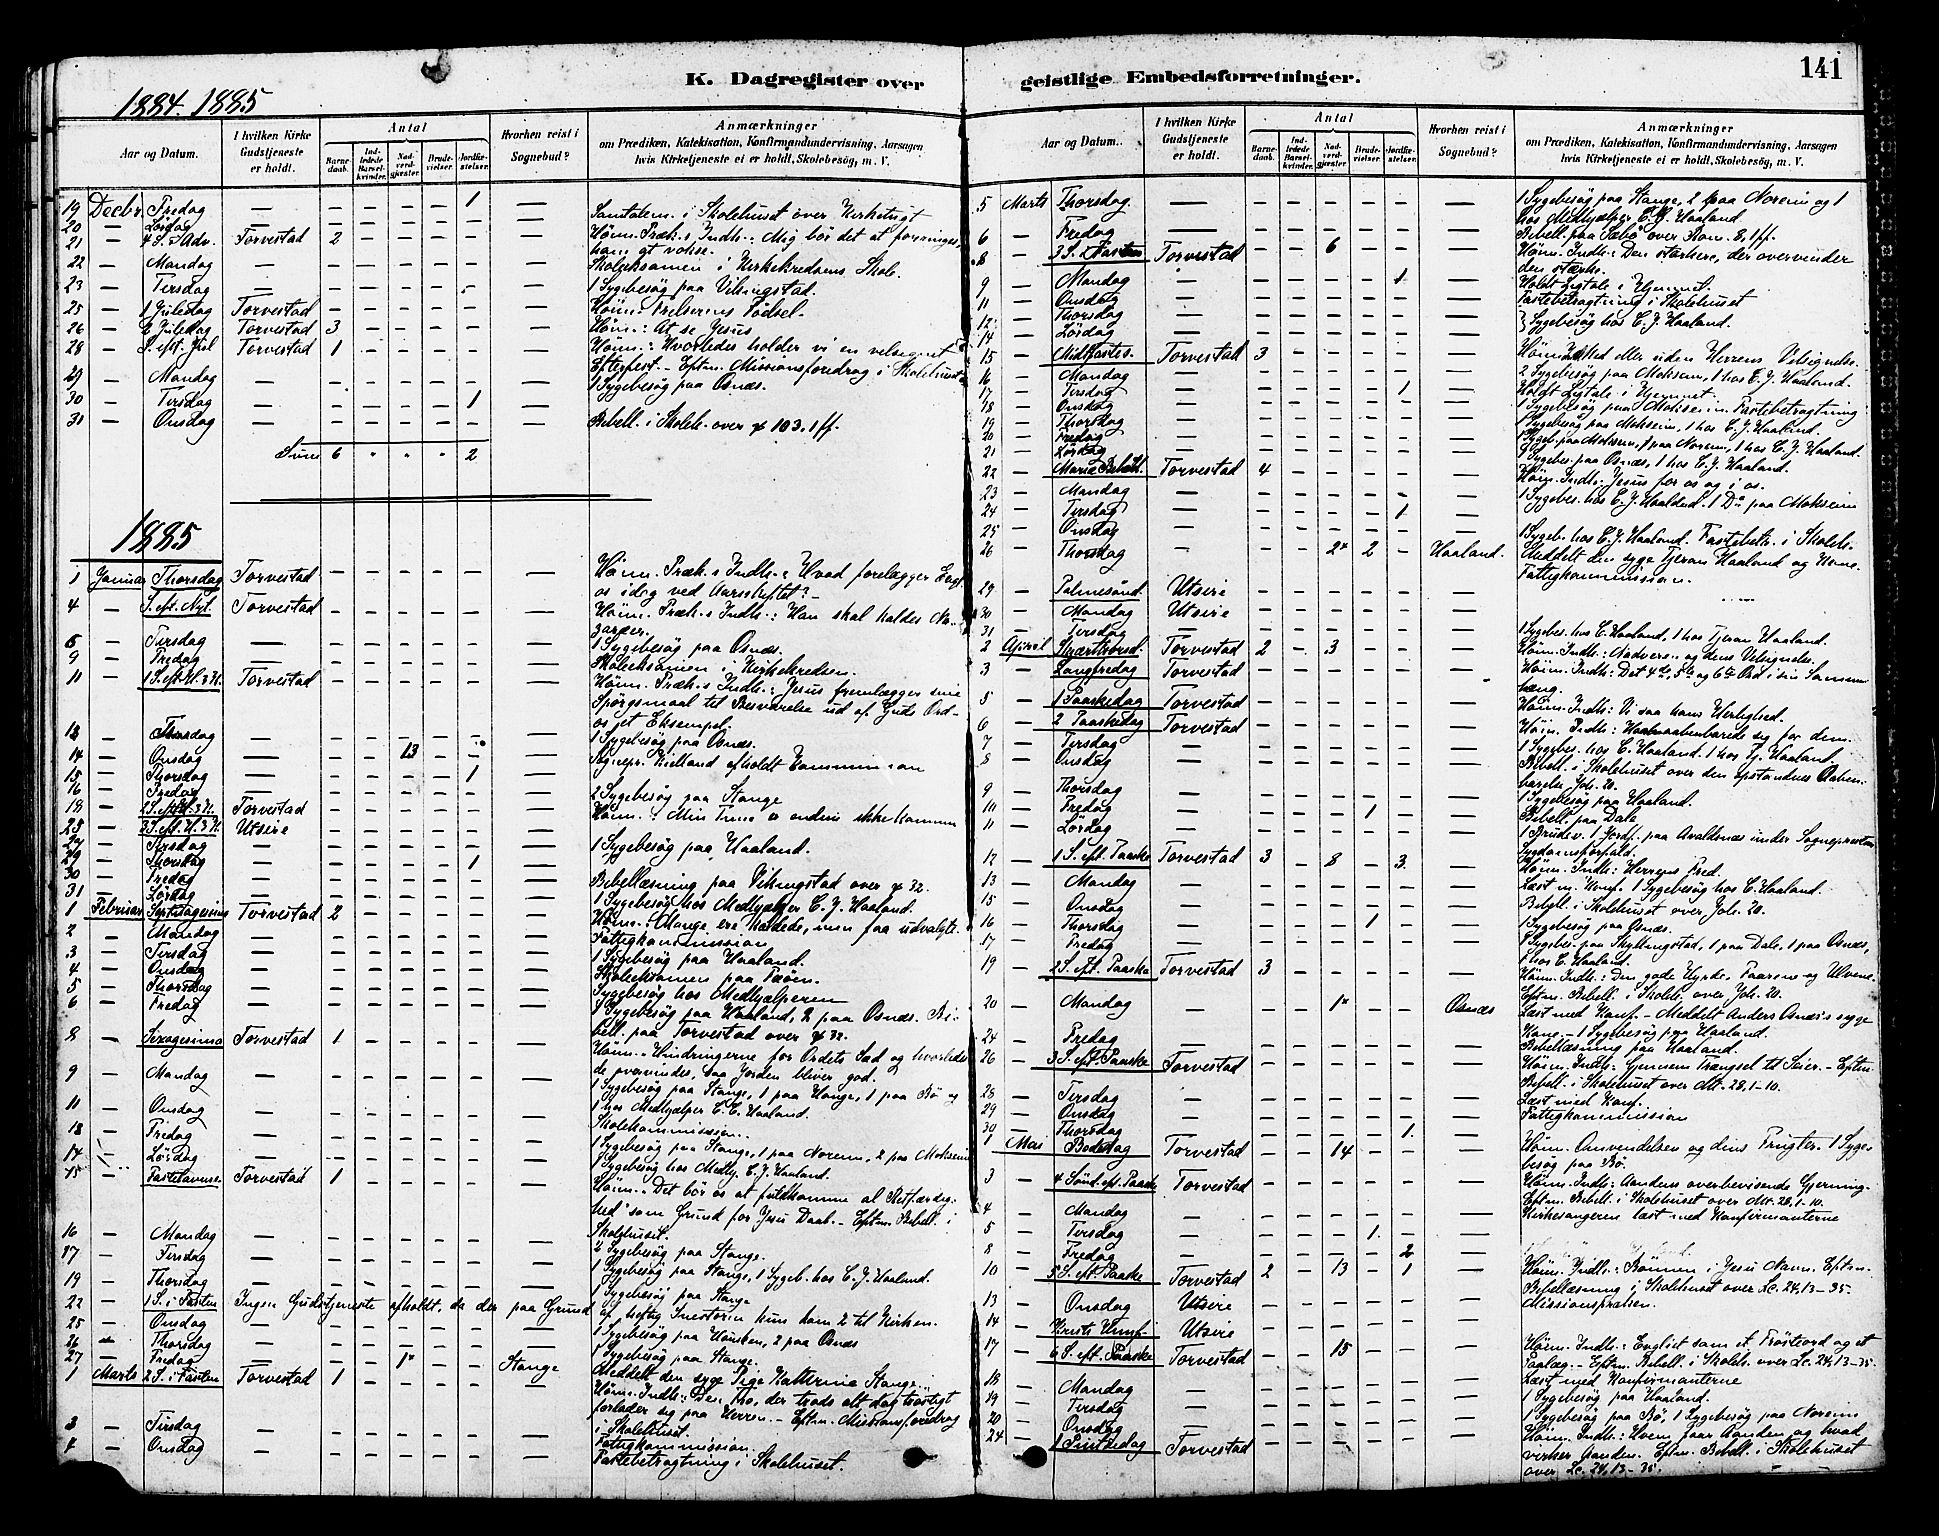 K. Dagregister over geistlige Embedsforretninger.
141
1884. 1885
Aar og Datum.
I hvilken Kirke Gudstjeneste er holdt.
Antal
Barnedaab.
Indledede Barselkvinder.
Nadverdgjæster.
Brudevielser.
Jordfæstelser.
Hvorhen reist i Sognebud?
Anmærkninger
om Prædiken, Katekisation, Konfirmandundervisning, Aarsagen
hvis Kirketjeneste ei er holdt, Skolebesøg, m. V.
19 Decbr Fredag — 1 — Samtalem. i Skolehuset over Kirketugt
20 — Lördag
21 — 4 S. i Adv. Torvestad 2 — Höim. Præk.s Indh.: Mig bör det at forringes,
ham at vokse.
22 — Mandag — Skoleeksamen i Kirkekredsens Skole.
23 — Tirsdag — 1 Sygebesög paa Vikingstad.
25 — 1 Juledag Torvestad — Höim. Frelserens Födsel.
26 — 2 Juledag Torvestad 3 — Höim.: At se Jesus
28 — S. eft. Jul Torvestad 1 — Höim.: Hvorledes holder vi en velsignet
Efterfest. — Eftm. Missionsforedrag i Skolehuset
29 — Mandag — 1 Sygebesög paa Osnæs.
30 — Tirsdag — 1
31 — Onsdag — Bibell. i Skoleh. over ψ 103. 1 ff.
Sum 6 " " " 2
1885
1 Januar Thorsdag Torvestad — Höim. Præk.s Indh.: Hvad forelægger
os idag ved Aarsskiftet? —
4 — S. eft. Nyt. Torvestad — Höim. Præk.s Indh.: Han skal kaldes Na-
zaræer.
6 — Tirsdag — 1 Sygebesög paa Osnæs.
9 — Fredag — Skoleeksamen i Kirkekredsen.
11 — 1 S. eft. H. 3 K. Torvestad — Höim. Præk.s Indh.: Jesus fremlægger sine
Spörgsmaal til Besvarelse ud af Guds Ord —
os et Eksempel.
13 — Tirsdag — 1 Sygebesög paa Osnæs.
14 — Onsdag — 13 — Sognepr. Kielland afholdt
15 — Thorsdag — 1
16 — Fredag — 2 Sygebesög paa Stange
18 — 2 S. eft. H. 3 K. Torvestad — Höim.: Min Time er endnu ikke kommen
25 — 3 S. eft. H. 3 K. Utsire
27 — Tirsdag — 1 Sygebesög paa Haaland.
29 — Thorsdag — 1
30 — Fredag — Bibellæsning paa Vikingstad over ψ 32.
31 — Lördag — 1 Sygebesög hos Medhjælper C. J. Haaland.
1 Februar Septuagesima Torvestad 2 — Höim.: Mange ere kaldede, men faa udvalgte.
2 — Mandag — Fattigkommission
3 — Tirsdag — 1 Sygebesög paa Haaland.
4 — Onsdag — Skoleeksamen paa
5 — Thorsdag — Sygebesög hos Medhjælperen
6 — Fredag — 1 Sygebesög paa Haaland, 2 paa Osnæs. Bi-
bell. paa Torvestad over ψ 32.
8 — Sexagesima Torvestad 1 — Höim. Hindringerne for Ordets Sæd og hvorledes
de overvindes, saa Jorden bliver god.
9 — Mandag — 1 Sygebesög paa Stange, 1 paa Hauge, 1 paa Bö og
1 hos Medhjælper C. J. Haaland.
11 — Onsdag — Skolekommission.
13 — Fredag — 1 Sygebesög paa Stange, 1 paa Noreim, 2 paa Mokseim
14 — Lördag — 1 Sygebesög hos Medhj. C. J. Haaland.
15 — Fastelavns. Torvestad 1 — Höim. Det bör os at fuldkomme al Retfærdig-
hed som Grund for Jesu Daab. — Eftm. Bibell. i
Skolehuset.
16 — Mandag
17 — Tirsdag — 2 Sygebesög paa Stange.
19 — Thorsdag — 1 Sygebesög paa Stange, 1 Sygeb. hos C. J. Haaland.
1 Sygebesög paa Stange
22 — 1 S. i Fasten Ingen Gudstjeneste afholdt, da der paa Grund
af heftig Snestorm kun kom 2 til Kirken.
25 — Onsdag
26 — Thorsdag — 1 Sygebesög paa Hausken, 2 paa Osnæs
27 — Fredag — 1 — Stange — 1 Sygebesög paa Stange.
Meddelt den syge Pige Katterine Stange.
1 Marts 2 S. i Fasten Torvestad 1 — Höim. Indh.: Den Tro, der trods alt dog tröstigt
forlader sig paa Herren — Eftm. Missionsforedrag
i Skolehuset.
3 — Tirsdag — Fattigkommission.
4 — Onsdag — Fastebetragtning i Skolehuset.
Aar og Datum.
I hvilken Kirke Gudstjeneste er holdt.
Antal
Barnedaab.
Indledede Barselkvinder.
Nadverdgjæster.
Brudevielser.
Jordfæstelser.
Hvorhen reist i Sognebud?
Anmærkninger
om Prædiken, Katekisation, Konfirmandundervisning, Aarsagen
hvis Kirketjeneste ei er holdt, Skolebesøg, m. V.
5 Marts Thorsdag — 1 Sygebesög paa Stange, 2 paa Noreim og 1
hos Medhjælper C. J. Haaland.
6 — Fredag — Bibell. paa Sæbö over Rom. 8, 1 ff.
8 — 3 S. i Fasten Torvestad — 6 — Höim. Indh.: Den stærkere, der overvinder
den stærke.
9 — Mandag — 1 — Holdt Ligtale i Hjemmet.
11 — Onsdag — Fastebetragtning i Skolehuset
12 — Thorsdag
14 — Lördag — Sygebesög hos C. J. Haaland.
15 — Midfastes. Torvestad 3 — Höim. Med eller uden Herrens Velsignelse.
16 — Mandag — 2 Sygebesög paa Mokseim, 1 hos C. J. Haaland.
17 — Tirsdag — 1 — Holdt Ligtale i Hjemmet.
18 — Onsdag — 1 Sygebesög paa Mokseim. Fastebetragtning
19 — Thorsdag — 1 Sygebesög paa Mokseim, 1 hos C. J. Haaland.
20 — Fredag — 1 Sygeb. paa Mokseim, 1 paa Noreim, 1 hos C. J. Haaland.
21 — Lördag — Sygebes. paa Osnæs, 1 hos C. J. Haaland.
22 — Maria Bebud. Torvestad 4 — Höim. Indh.: Jesus for os og i os.
23 — Mandag — 1 Sygebes. hos C. J. Haaland. 1 Do paa Mokseim
24 — Tirsdag — 1
25 — Onsdag — 1 Sygeb. hos C. J. Haaland. Fastebetr. i Skoleh.
26 — Thorsdag — 2 2 — Haaland. Meddelt den syge Tjeran Haaland og Kone.
Fattigkommission.
29 — Palmesönd. Utsire
30 — Mandag Utsire
31 — Tirsdag — 1 Sygebes. hos C. Haaland, 1 hos Tjeran Haaland.
2 April Skærthorsd. Torvestad 2 — 3 — Höim. Indh.: Nadveren og dens Velsignelse.
3 — Langfredag Torvestad — Höim. Indh.: Det 4de, 5te og 6te Ord i sin Sammen-
hæng.
5 — 1 Paaskedag Torvestad — Höim. Indh.: Vi saa hans Herlighed.
6 — 2 Paaskedag Torvestad — Höim. Indh.: Han aabenbarede sig for dem.
7 — Tirsdag — 1 Sygebes. hos C. Haaland. 1 hos Tj. Haaland.
8 — Onsdag — Bibell. i Skolehuset over den opstandnes Aaben-
barelse Joh. 20.
9 — Thorsdag — 1 Sygebesög paa Haaland.
10 — Fredag — 1 — Bibell. paa Dale
11 — Lördag — 1 Brudev. 1 Jordf. paa Avaldsnæs under Sognepræstens
Sygdomsforfald.
12 — 1 S. eft. Paaske Torvestad 3 — 8 — 3 — Höim. Indh.: Herrens Fred.
13 — Mandag — Læst m. Konf. 1 Sygebesög hos C. Haaland.
15 — Onsdag — Bibell. i Skolehuset over Joh. 20.
16 — Thorsdag — 1 — 1 Sygebesög paa Osnæs.
17 — Fredag — 1 Sygebes. paa Skyttingstad, 1 paa Dale, 1 paa Osnæs,
1 hos C. Haaland.
19 — 2 S. eft. Paaske Torvestad 3 — Höim. Indh.: Den gode Hyrde, Faarene og Ulvene.
Eftm. Bibell. i Skoleh. over Joh. 20.
20 — Mandag — 1 — Osnæs — Læst med Konf. — Meddelt Anders Osnæs's syge
Kone. — 1 Sygebesög paa Haaland.
24 — Fredag — Bibellæsning paa Haaland.
26 — 3 S. eft. Paaske Torvestad — Höim. Indh.: Gjennem Trængsel til Seier. — Eftm.
Bibell. i Skolehuset over Mt. 28, 1-10.
28 — Tirsdag — Læst med Konf.
29 — Onsdag — Fattigkommission
30 — Thorsdag — 1
1 Mai Bededag Torvestad — 14 — Höim. Omvendelsen og dens Frugter. 1 Syge-
besög paa Bö.
3 — 4 Sönd. eft. Paaske Torvestad — Höim. Indh.: Aandens overbevisende Gjerning.
Eftm. Bibell. i Skolehuset over Mt. 28, 1-10.
4 — Mandag — Kirkesangeren læst med Konfirmanterne
5 — Tirsdag — 1
8 — Fredag — 2
10 — 5 S. eft. Paaske Torvestad 2 — 13 — 1 — Höim. Indh.: Bönnen i Jesu Navn. Eftm.
Bibellæsning i Skolehuset over Lc. 24, 13-35.
13 — Onsdag Utsire — Missionsprælsen.
14 — Kristi Himf. Utsire
17 — 6 S. eft. Paaske Torvestad — 15 — Höim. Indh.: Evigt som et Tröstord og et
Paalæg. — Eftm. Bibell. i Skoleh. over Lc. 24, 13-35.
18 — Mandag — Læst med Konfirmanterne
19 — Tirsdag — 1 Sygebesög paa Haaland.
20 — Onsdag — 1 Sygebesög paa Bö, 1 Sygebesög paa Noreim
24 — 1 Pintsedag Torvestad — Höim. Indh.: Hvem faar Aanden og hvad
virker Aanden. Eftm. Bibell. i Skolehuset
over Lc. 24, 13-35.